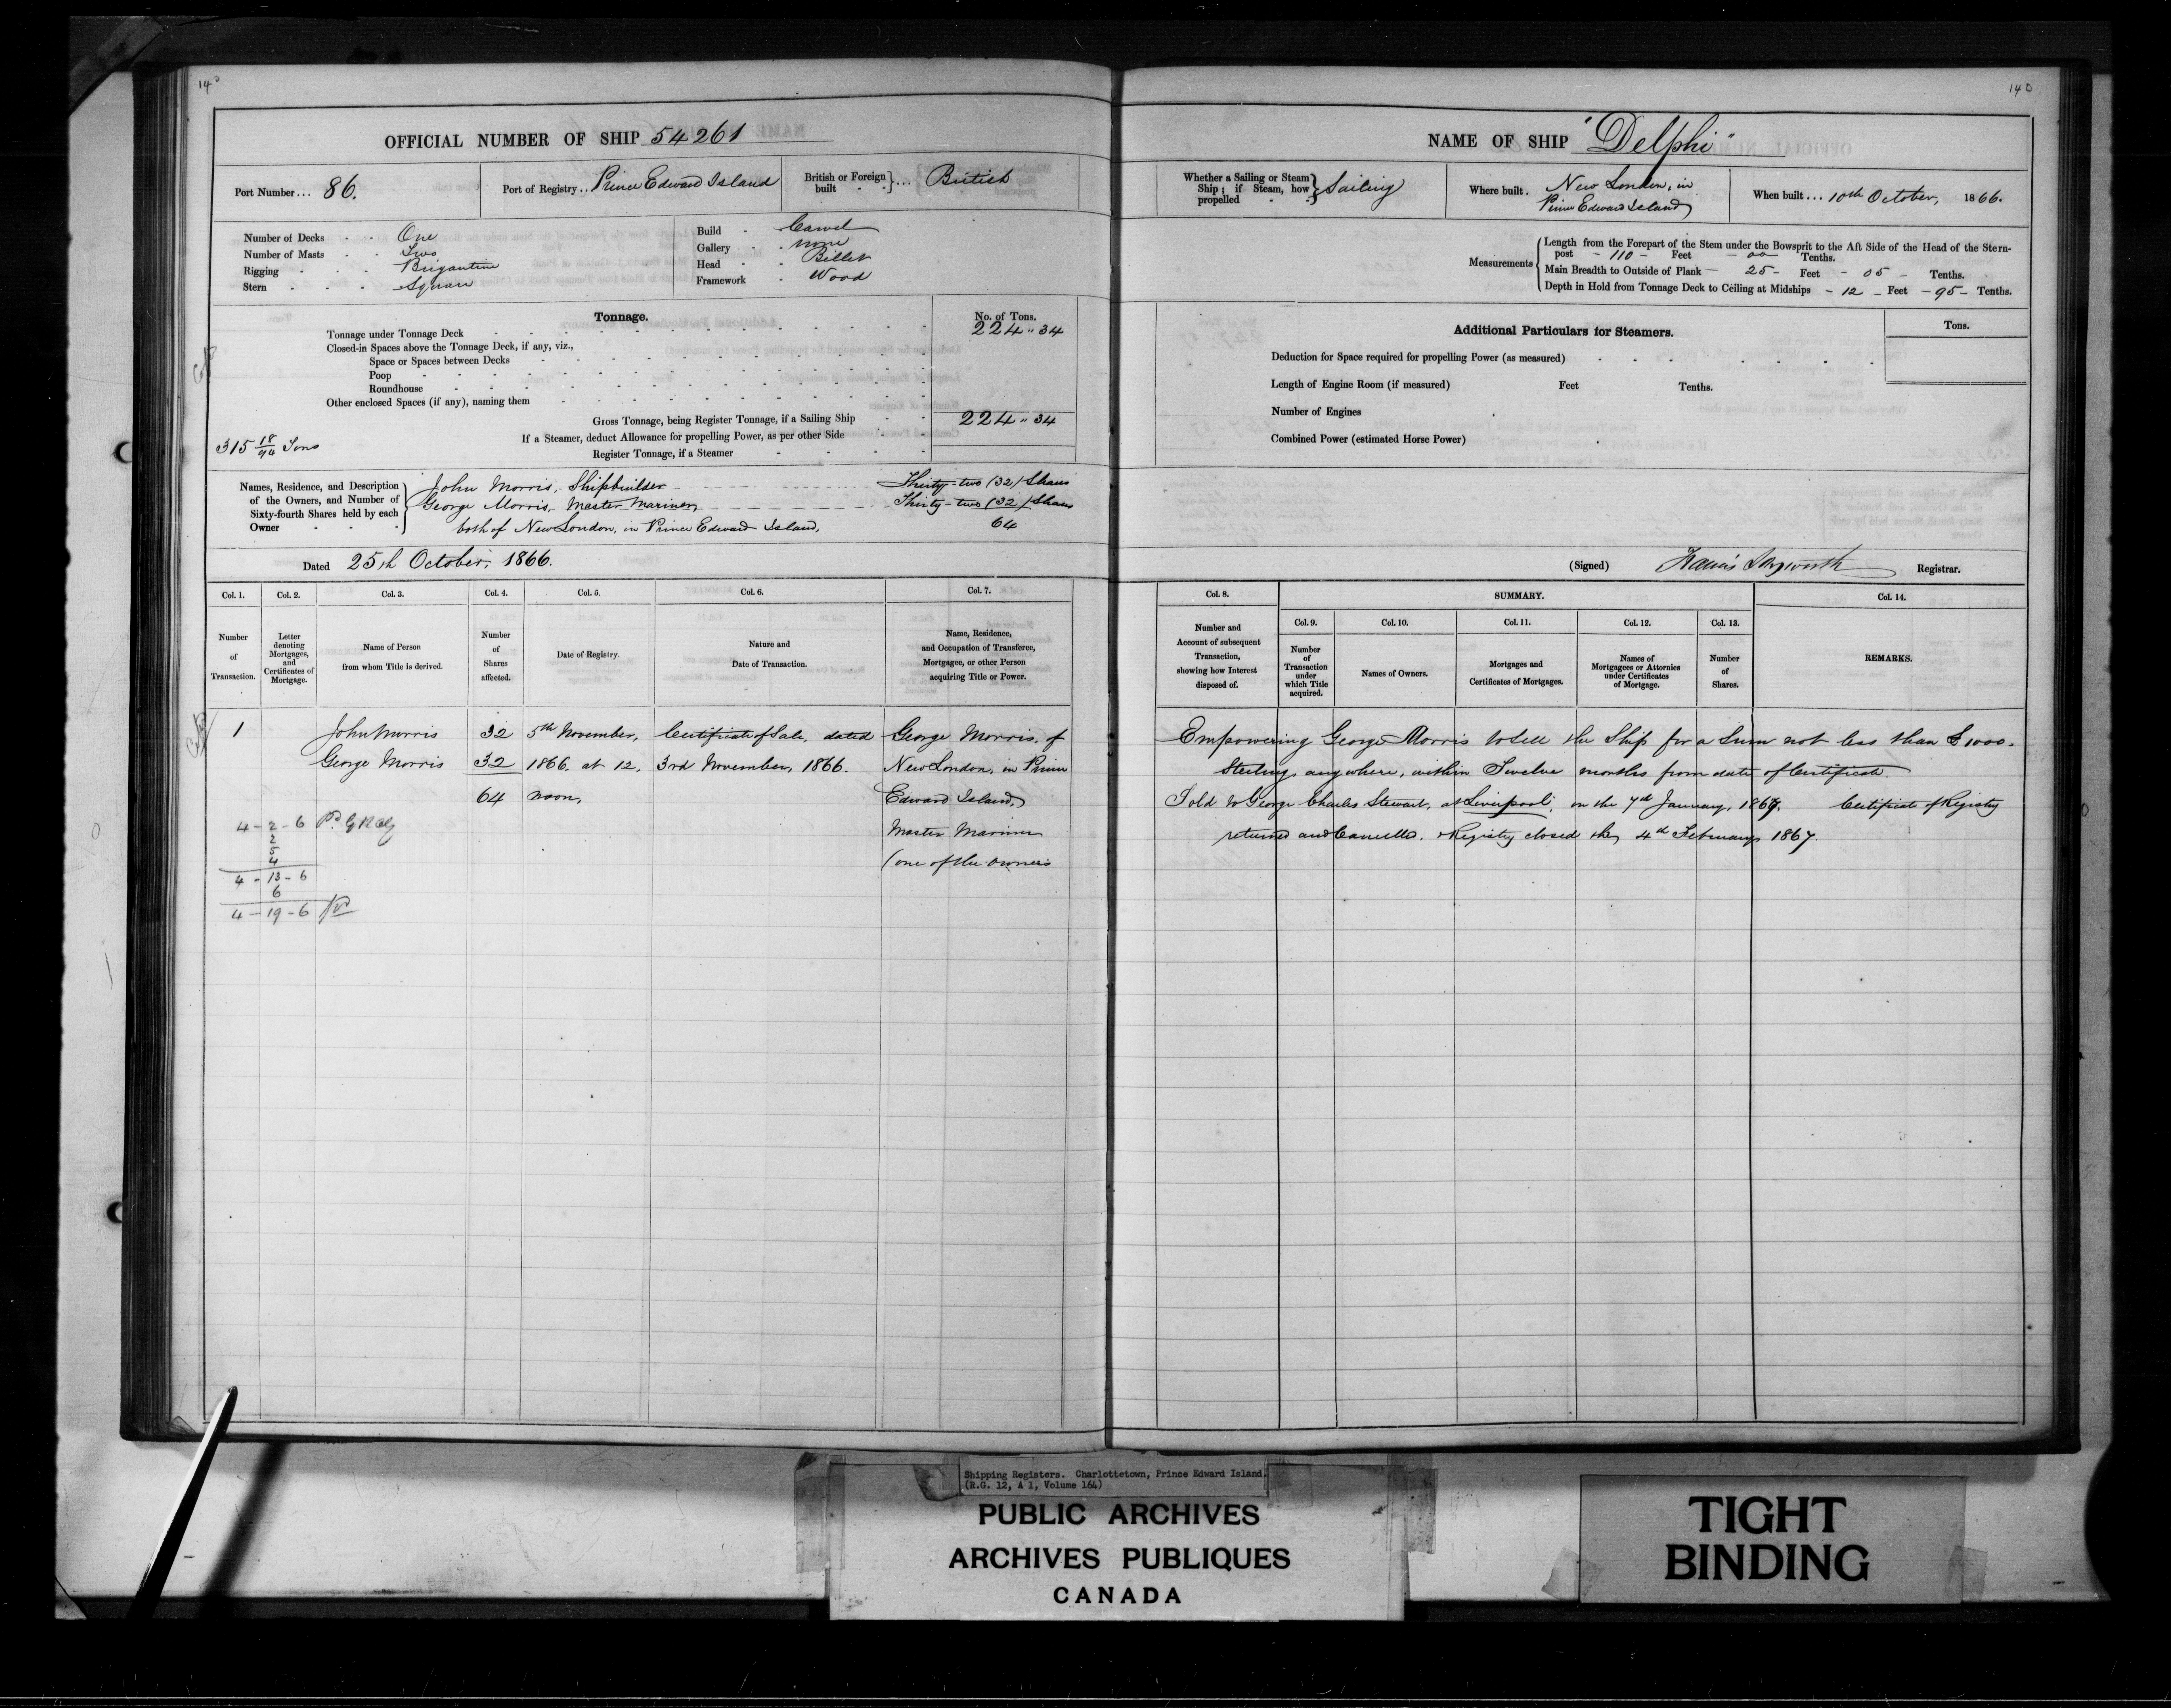 140
OFFICIAL NUMBER OF SHIP 54261
Port Number... 86.
Port of Registry.. Prince Edward Island
British or Foreign built - - }... British
Number of Decks - - One
Number of Masts - - Two
Rigging - - - Brigantine
Stern - - - Square
Build - Carvel
Gallery - - none
Head - - Billet
Framework - Wood
Tonnage.
No. of Tons.
Tonnage under Tonnage Deck 224 " 34
Closed-in Spaces above the Tonnage Deck, if any, viz.,
Space or Spaces between Decks
Poop
Roundhouse
Other enclosed Spaces (if any), naming them
Gross Tonnage, being Register Tonnage, if a Sailing Ship 224 " 34
If a Steamer, deduct Allowance for propelling Power, as per other Side
315 18/94 Tons
Register Tonnage, if a Steamer
Names, Residence, and Description of the Owners, and Number of Sixty-fourth Shares held by each Owner
John Morris, Shipbuilder Thirty-two (32) Shares
George Morris, Master Mariner, Thirty-two (32) Shares
both of New London, in Prince Edward Island, 64
Dated 25th October, 1866.
Col. 1. Col. 2. Col. 3. Col. 4. Col. 5. Col. 6. Col. 7.
Number of Transaction.
Letter denoting Mortgages, and Certificates of Mortgage.
Name of Person from whom Title is derived.
Number of Shares affected.
Date of Registry.
Nature and Date of Transaction.
Name, Residence, and Occupation of Transferee, Mortgagee, or other Person acquiring Title or Power.
1 John Morris 32 5th November, Certificate of Sale, dated George Morris, of
George Morris 32 1866. at 12, 3rd November, 1866. New London, in Prince
64 noon, Edward Island,
Master Mariner
(one of the owners
4-2-6 Pd
2
5
4
4-13-6
6
4-19-6
140
NAME OF SHIP "Delphi"
Whether a Sailing or Steam Ship; if Steam, how propelled - - } Sailing
Where built. New London, in
Prince Edward Island
When built... 10th October, 1866.
Measurements
Length from the Forepart of the Stem under the Bowsprit to the Aft Side of the Head of the Stern-
post - 110 - Feet - 00 - Tenths.
Main Breadth to Outside of Plank - 25 - Feet - 05 - Tenths.
Depth in Hold from Tonnage Deck to Ceiling at Midships - 12 - Feet - 95 - Tenths.
Additional Particulars for Steamers.
Tons.
Deduction for Space required for propelling Power (as measured)
Length of Engine Room (if measured) Feet Tenths.
Number of Engines
Combined Power (estimated Horse Power)
(Signed) Registrar.
Col. 8. SUMMARY. Col. 14.
Col. 9. Col. 10. Col. 11. Col. 12. Col. 13.
Number and Account of subsequent Transaction, showing how Interest disposed of.
Number of Transaction under which Title acquired.
Names of Owners.
Mortgages and Certificates of Mortgages.
Names of Mortgagees or Attornies under Certificates of Mortgage.
Number of Shares.
REMARKS.
Empowering George Morris to sell the Ship for a Sum not less than £1000.
Sterling, anywhere, within Twelve months from date of Certificate.
Sold to George Charles Stewart, at Liverpool, on the 7th January, 1867. Certificate of Registry
returned and Cancelled. Registry closed the 4th February 1867.
Shipping Registers. Charlottetown, Prince Edward Island.
(R.G. 12, A 1, Volume 164)
PUBLIC ARCHIVES
ARCHIVES PUBLIQUES
CANADA
TIGHT
BINDING